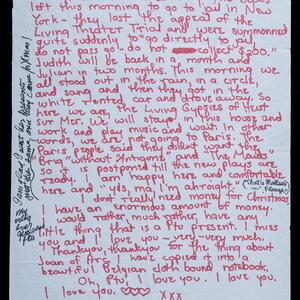 left this morning to go to jail in New
York - they lost the appeal of the
Living Theater Trial and were summoned
quite suddenly to "go directly to jail
do not pass go. do not collect $200."
Judith will be back in a month and
Julian in two months. This morning we
all stood out in the rain in a circle
and sang and then they got in the
white rented car and drove away. So
here we are, the Living at Heist
sur Mer. We will stay in this house and
work and play music and wait in other
words we are not going to Paris. The
Paris people said they didn't want the
Bra "without Antigone" and "The Maids"
so it is postponed till the new plays are
ready. I am happy here and comfortable
here and "yds, ma, I'm ahright."
I don't really need money for Christmas
I have an enormous amount of money.
I would rather, much rather, have any
little thing that is a Ptu present. I miss
you and I love you very very much.
Thankyou, thankyou for the thing about
Joan of Arc I have copied it into a
beautiful Belgian cloth bound notebook.
Oh, Ptu! I love you. I love you.
I love you. ♡♡♡ xxx
(That's Mother
in
my
only
Ptu